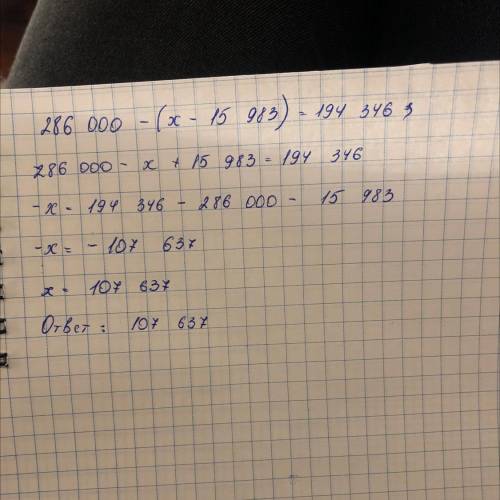 286 000 - (x - 15 983) = 194 346 ;
286 000 - x + 15 983 = 194 346
-x = 194 346 - 286 000 - 15 983
-x = - 107 637
x = 107 637
Ответ : 107 637